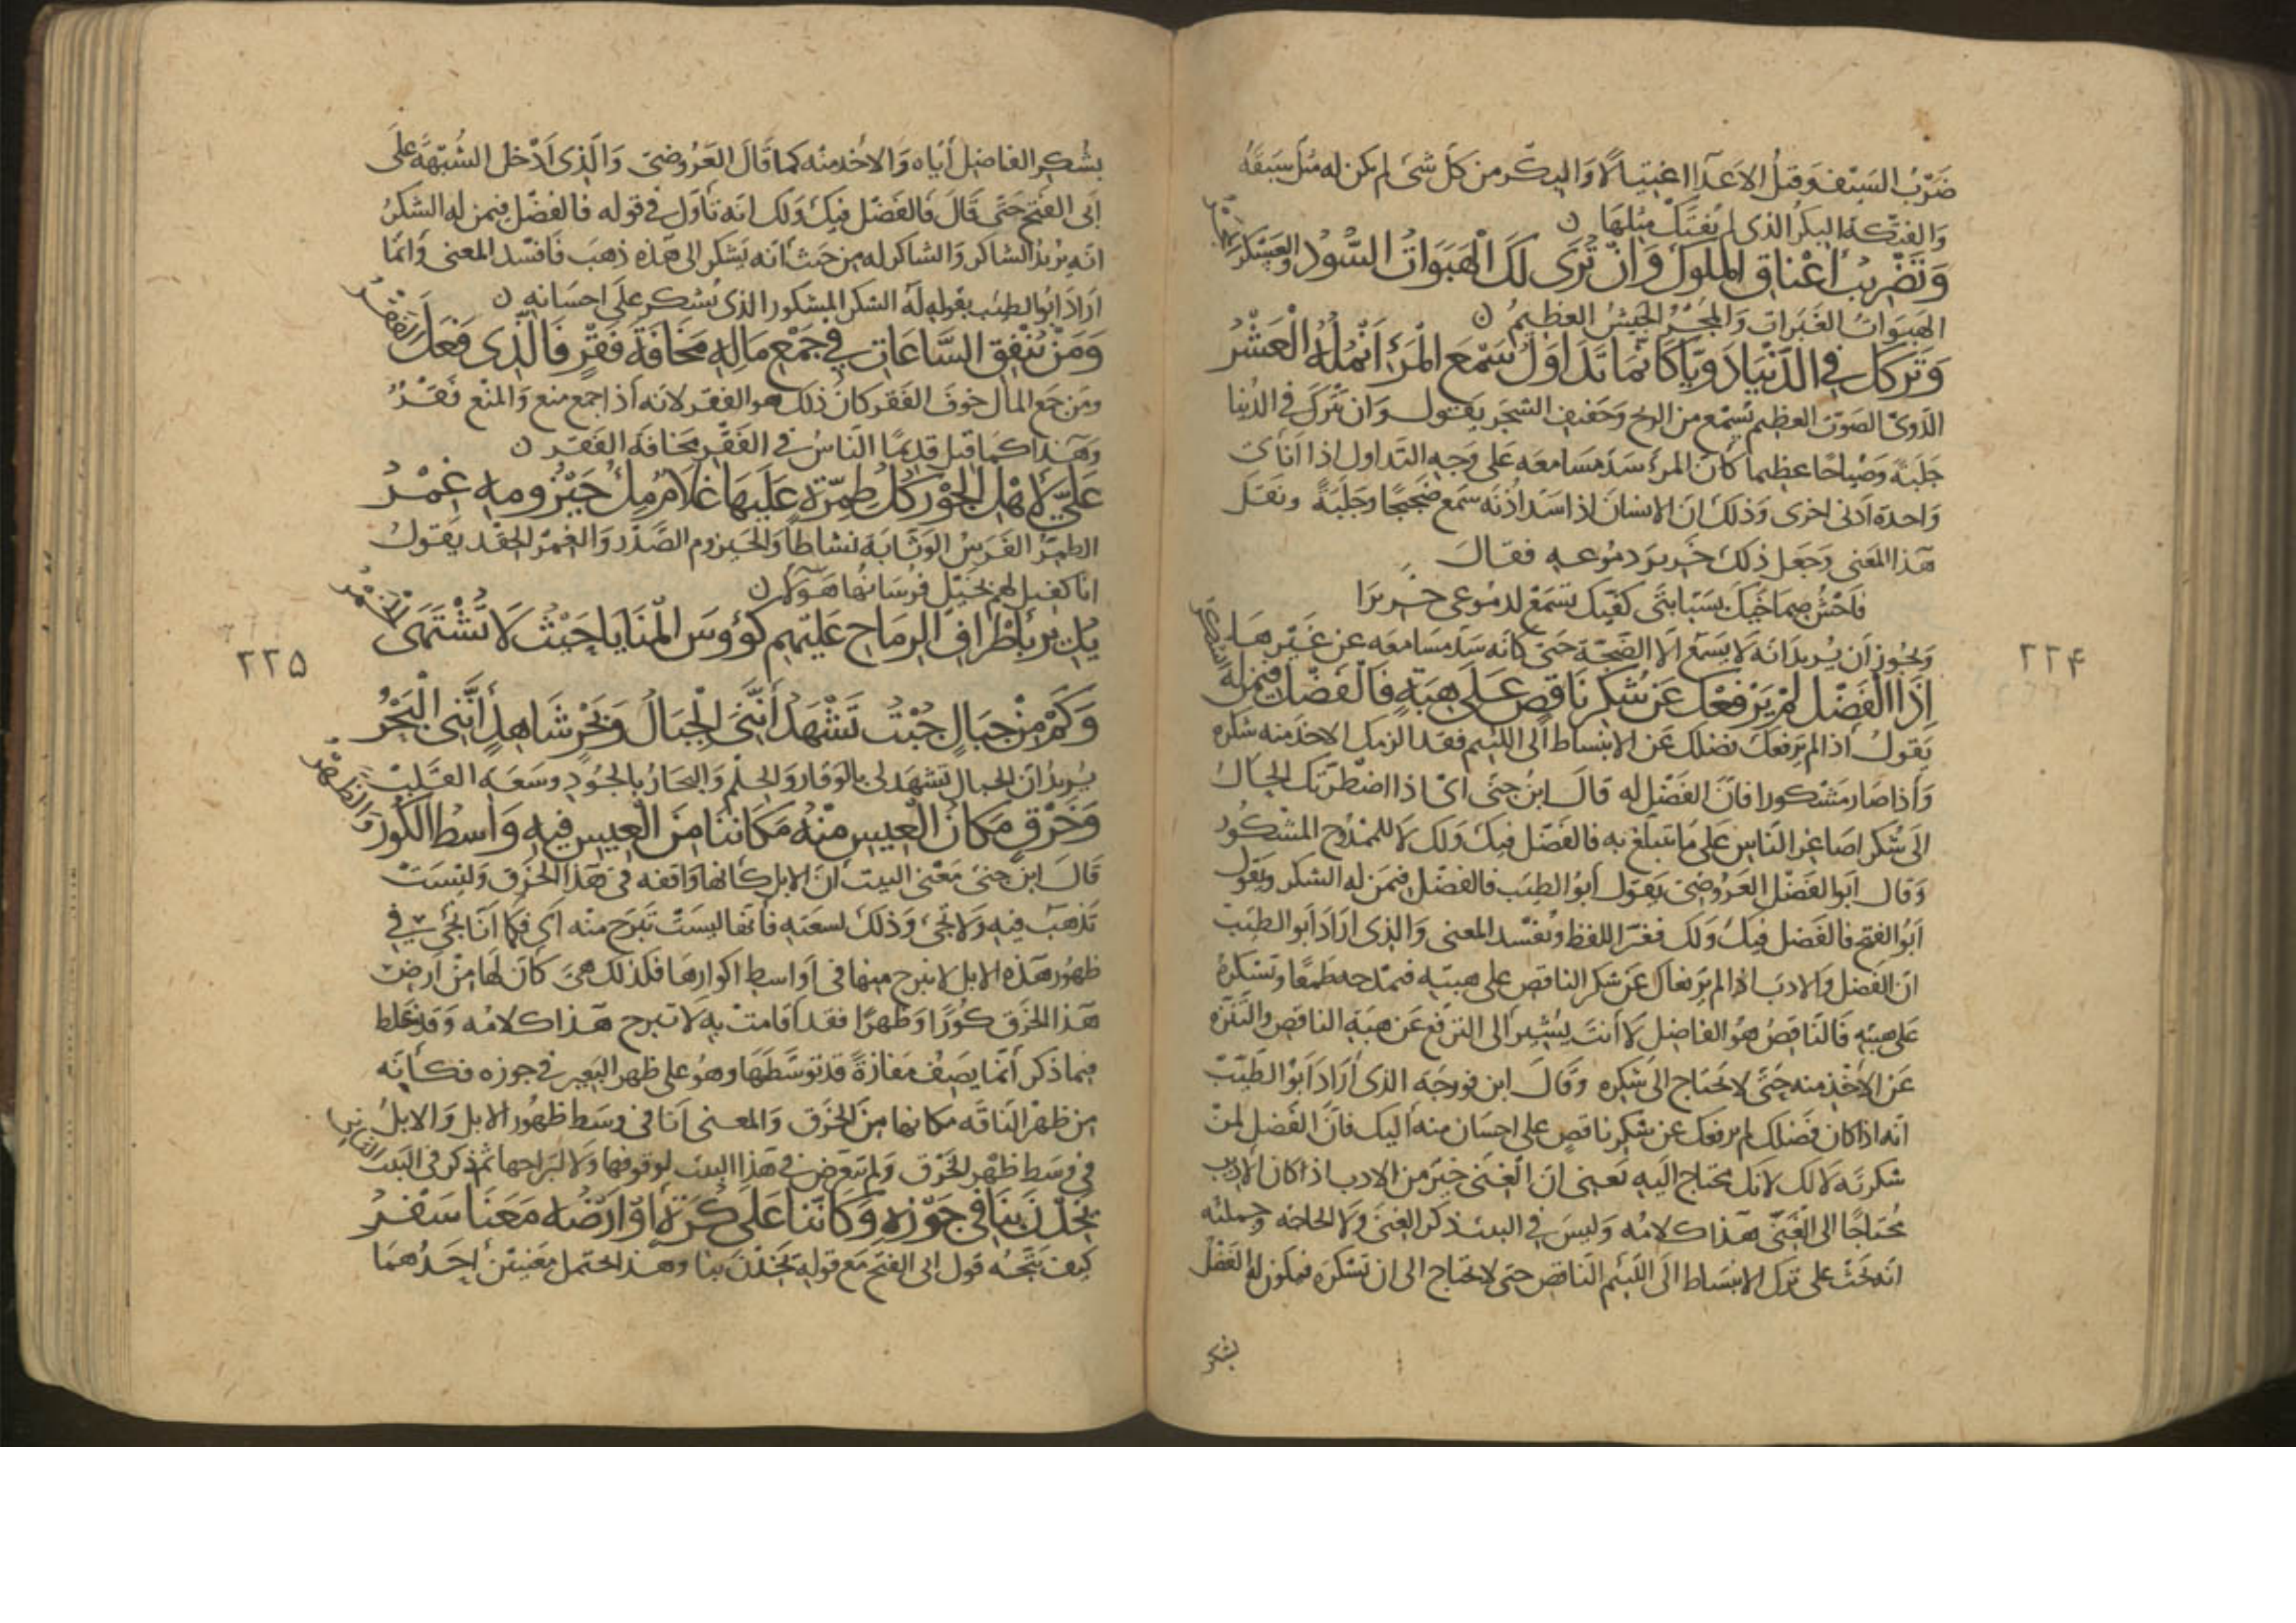 ضَرْبُ السَيْف وَقتلُ الاعدَآ اغتيالًا وَالبِكْر من كلّ شئ لم يكن له مثل سَبَقَهُ
وَالفتكة البِكرُ الذى لم يُفتَك مثلهَا ن
وَتَضْرِيبُ أَعْنَاقِ المُلُوكِ وَانْ تُرَى لَكَ الْهَبَوَاتُ السُّودُ والعَسْكَر المَجْرُ
الهَبَوَاتُ الغَبَرات وَالمَجْرُ الجَيشُ العظيمُ ن
وَتَرْكُكَ فِي الدُّنْيَا دَوِيًّا كَأَنَّمَا تَدَاوَلُ سَمْعَ الْمَرْءِ أَنْمُلُهُ الْعَشْرُ
الدَّوىّ الصَوْت العظيم يُسمع من الريح وَحَفيف الشجَر يَقُول وَان تترك في الدُنيا
جَلَبَةً وَصيَاحًا عظيما كأن المرءَ سَدَّ مسَامعَه عَلى وَجه التداول اذا انأى
وَاحدة أدنى اخرى وَذلك ان الانسان اذا سَدّ اُذُنَه سَمع ضجيجًا وجَلَبَةً ونَقل
هَذا المعَنى وَجعَل ذلك خرير دمُوعه فقالَ
فَاحْشُ صِمَاخَيك بسَبّابتَى كفّيك تسمَعْ لدمُوعى خريرَا
وَيجُوز أن يُريد انه لا يسمَع الا الضجّة حتى كانّه سَدّ مسَامعَه عن غَيْرهَا
إِذَا الفَضْلُ لَمْ يَرْفَعْكَ عَنْ شُكْرِ نَاقِصٍ عَلَى هِبَةٍ فَالْفَضْلُ فِيمَنْ لَهُ الشُّكْرُ
يَقولُ اذا لم يَرفعك فضلك عَن الانبسَاط الى اللئيم فقد الزمك الاخذ منه شكره
وَاذا صَار مَشكورا فانّ الفَضْل له قالَ ابنُ جنّى اىْ اذا اضْطَرّتك الحَالُ
الى شكر اصَاغِر النّاس عَلى مَا تتبلّغ به فالفَضْل فيك وَلك لَا للممدُوح المشكُور
وَقال ابَو الفَضْل العَرُوضىّ يَقول أبوُ الطيَب فالفضْل فيمَن له الشكر ويَقول
أبوُ الفتح فالفَضل فيكَ وَلك فغيّر اللفظ وَيفُسد المعنى وَالذى ارَادَ ابَو الطيّب
انّ الفَضل وَالادبَ اذا لم يرفعاك عَنْ شكر الناقص على هبته فتمدحه طمعًا وتشكرهُ
عَلى هبته فَالنّاقصُ هُو الفاضِل لَا أنتَ يُشير الى الترفع عَن هبَة الناقص والتّنزّه
عَن الأَخْذ منه حَتّى لا يحتَاج الى شكره وَقالَ ابن فورجَه الذى أرَادَ أبَوُ الطَيّبُ
انّه اذا كان فضلك لم يرفعك عن شكر ناقص على احسَان منه اليك فانّ الفضل لمنْ
شكرتَه لَا لك لانك محتاج اليه يَعنى ان الغَنى خيَر من الادب اذا كان الادبُ
مُحتاجًا الى الغَنَى هَذا كلامُه وَليسَ فى البيت ذكر الغِنَى وَلَا الحاجَه وجملته
انّه يحثّ على ترك الانبسَاط الَى اللئيم النّاقص حتى لا يحتاج الى ان تشكرَه فيكون له الفَضْل
بشكر
٢٢۴
بشُكر الفاضِل أياه وَالاخذ منه كمَا قالَ العَرُوضىّ وَالّذى أدْخلَ الشُبْهَةَ عَلَى
أبى الفتح حتى قَالَ فالفَضْل فيك وَلك انه تأوّل فى قوله فالفضْل فيمن له الشكرُ
انه يُريدُ الشاكر وَالشاكر له من حَيث أنه يشكر الى هَذه ذهبَ فَافسَد المعنى وَانما
ارَادَ ابُو الطيّب بقوله له الشكر المشكورَ الذى يُشكر على احسَانه ن
وَمَنْ يُنْفِقِ السَّاعَاتِ فِي جَمْعِ مَالِهِ مَخَافَةَ فَقْرٍ فَالَّذِي فَعَلَ الفَقْرُ
ومَن جَمع المال خوفَ الفَقر كان ذلك هو الفقر لانه أذا جمع منع وَالمنْع فَقْرٌ
وَهَذا كما قيل قديمًا النّاسُ فى الفَقْر مخافة الفَقر ن
عَلَيَّ لِأَهْلِ الجَوْرِ كُلُّ طِمِرَّةٍ عَلَيْهَا غُلَامٌ مِلْءُ حَيْزُومِهِ غِمْرُ
الطِمِرّة الفَرسُ الوثّابَة نشاطًا وَالحَيزوم الصَدْر وَالغمرُ الحِقْد يَقولُ
انا كفيل لهم بخَيْل فرسَانهُا هَؤلآء ن
يُدِيرُ بِأَطْرَافِ الرِّمَاحِ عَلَيْهِمِ كُؤُوسَ المَنَايَا حَيْثُ لَا تُشْتَهَى الخَمْرُ
وَكَمْ مِنْ جِبَالٍ جُبْتُ تَشْهَدُ أَنَّنِي الْجِبَالُ وَبَحْرٍ شَاهِدٍ أَنَّنِي الْبَحْرُ
يُريدُ ان الجبال تشهد لى بالوَقار وَالحِلْم وَالبحَارُ بالجُود وسَعَة القَلْب
وَخَرْقٍ مَكَانُ الْعِيسِ مِنْهُ مَكَانُنَا مِنَ الْعِيسِ فِيهِ وَاسِطُ الْكُورِ وَالظَّهْرُ
قَالَ ابن جنىّ مَعْنى البيت أن الابل كأنها وَاقفه فى هَذا الخَرْق وَليْسَتْ
تَذهَب فيه وَلا تجئ وَذلك لسعَته فأنهَا ليسَتْ تَبرَح منه اى فكما أنّا نحَن فى
ظهُور هَذه الابل لا نبرح منها فى أوَاسط اكوارهَا فكذلك هىَ كَان لهَا منْ أرضِ
هَذا الخَرْق كُورًا وَظهرًا فقد أقامتْ بهِ لَا تبرح هَذا كلامُه وَقد غلط
فيما ذكر أنّما يصَف مَفازةً قد توسّطَهَا وهُو على ظهر البَعير فى جوزه فكأنّه
من ظهْر النَاقَه مكانها منَ الخَرْق وَالمعَنى انَا فى وسَط ظهُور الابل وَالابلُ
فى وسَط ظهْر الخَرْق وَلم يتعَرض فى هَذا البيت لوقوفها وَلا لبَراحهَا ثمّ ذكر فى البَيت الثانى
يَخِدْنَ بِنَا فِي جَوْزِهِ وَكَأَنَّنَا عَلَى كُرَةٍ أَوْ أَرْضُهُ مَعَنَا سَفْرُ
كيف يتّجهُ قول ابى الفتح مَع قوله يَخِدْنَ بنا وهَذا يحتمل مَعنيَيْن أحدُهمَا
٢٢۵